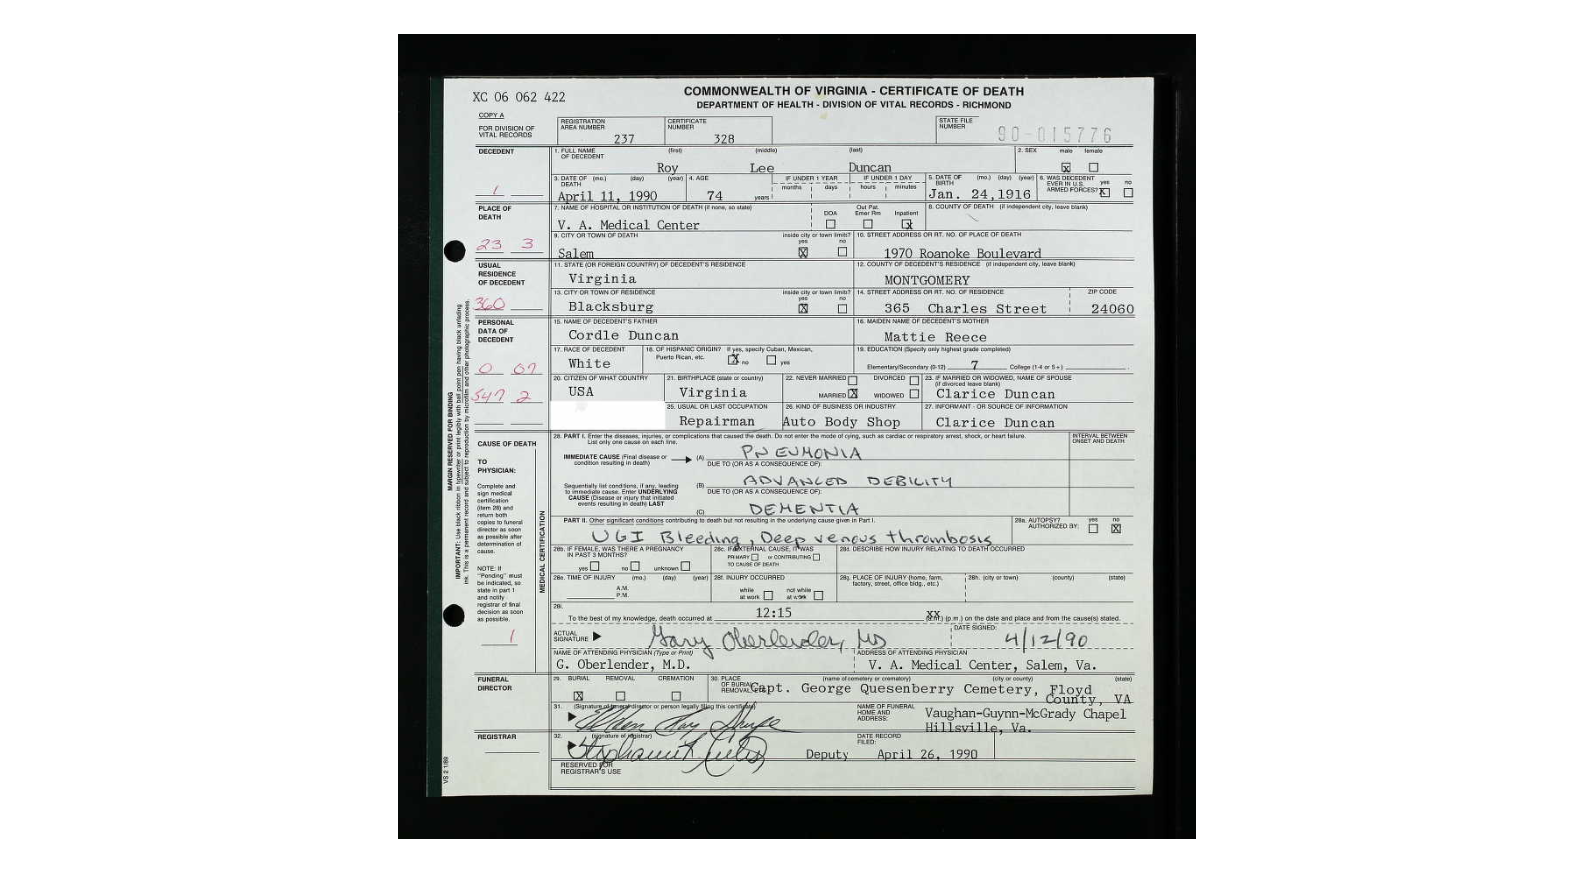 XC 06 062 422
COMMONWEALTH OF VIRGINIA - CERTIFICATE OF DEATH
DEPARTMENT OF HEALTH - DIVISION OF VITAL RECORDS - RICHMOND
COPY A
FOR DIVISION OF VITAL RECORDS
REGISTRATION AREA NUMBER 237
CERTIFICATE NUMBER 328
STATE FILE NUMBER 90-015776
DECEDENT
1. FULL NAME OF DECEDENT (first) (middle) (last)
Roy Lee Duncan
2. SEX male female
x
1
3. DATE OF DEATH (mo.) (day) (year)
April 11, 1990
4. AGE
74 years
IF UNDER 1 YEAR months days
IF UNDER 1 DAY hours minutes
5. DATE OF BIRTH (mo.) (day) (year)
Jan. 24,1916
6. WAS DECEDENT EVER IN U.S. ARMED FORCES? yes no
x
PLACE OF DEATH
7. NAME OF HOSPITAL OR INSTITUTION OF DEATH (if none, so state)
V. A. Medical Center
DOA Out Pat. Emer Rm Inpatient
x
8. COUNTY OF DEATH (if independent city, leave blank)
23 3
9. CITY OR TOWN OF DEATH
Salem
inside city or town limits? yes no
X
10. STREET ADDRESS OR RT. NO. OF PLACE OF DEATH
1970 Roanoke Boulevard
USUAL RESIDENCE OF DECEDENT
11. STATE (OR FOREIGN COUNTRY) OF DECEDENT'S RESIDENCE
Virginia
12. COUNTY OF DECEDENT'S RESIDENCE (if independent city, leave blank)
MONTGOMERY
360
13. CITY OR TOWN OF RESIDENCE
Blacksburg
inside city or town limits? yes no
X
14. STREET ADDRESS OR RT. NO. OF RESIDENCE
365 Charles Street
ZIP CODE
24060
PERSONAL DATA OF DECEDENT
15. NAME OF DECEDENT'S FATHER
Cordle Duncan
16. MAIDEN NAME OF DECEDENT'S MOTHER
Mattie Reece
17. RACE OF DECEDENT
White
18. OF HISPANIC ORIGIN? If yes, specify Cuban, Mexican, Puerto Rican, etc.
X no yes
19. EDUCATION (Specify only highest grade completed)
Elementary/Secondary (0-12) 7 College (1-4 or 5+)
0 07
20. CITIZEN OF WHAT COUNTRY
USA
21. BIRTHPLACE (state or country)
Virginia
22. NEVER MARRIED DIVORCED
MARRIED X WIDOWED
23. IF MARRIED OR WIDOWED, NAME OF SPOUSE (if divorced leave blank)
Clarice Duncan
547 2
25. USUAL OR LAST OCCUPATION
Repairman
26. KIND OF BUSINESS OR INDUSTRY
Auto Body Shop
27. INFORMANT - OR SOURCE OF INFORMATION
Clarice Duncan
MARGIN RESERVED FOR BINDING
IMPORTANT: Use black ribbon in typewriter or print legibly with ball point pen having black unfading ink. This is a permanent record and subject to reproduction by microfilm and other photographic process.
CAUSE OF DEATH
TO PHYSICIAN:
Complete and sign medical certification (item 28) and return both copies to funeral director as soon as possible after determination of cause.
NOTE: If "Pending" must be indicated, so state in part 1 and notify registrar of final decision as soon as possible.
1
MEDICAL CERTIFICATION
28. PART I. Enter the diseases, injuries, or complications that caused the death. Do not enter the mode of dying, such as cardiac or respiratory arrest, shock, or heart failure.
List only one cause on each line.
INTERVAL BETWEEN ONSET AND DEATH
IMMEDIATE CAUSE (Final disease or condition resulting in death) (A) PNEUMONIA
DUE TO (OR AS A CONSEQUENCE OF):
Sequentially list conditions, if any, leading to immediate cause. Enter UNDERLYING CAUSE (Disease or injury that initiated events resulting in death) LAST
(B) ADVANCED DEBILITY
DUE TO (OR AS A CONSEQUENCE OF):
(C) DEMENTIA
PART II. Other significant conditions contributing to death but not resulting in the underlying cause given in Part I.
UGI Bleeding, Deep venous thrombosis
28a. AUTOPSY? AUTHORIZED BY: yes no
X
28b. IF FEMALE, WAS THERE A PREGNANCY IN PAST 3 MONTHS?
yes no unknown
28c. IF EXTERNAL CAUSE, IT WAS
PRIMARY or CONTRIBUTING
TO CAUSE OF DEATH
28d. DESCRIBE HOW INJURY RELATING TO DEATH OCCURRED
28e. TIME OF INJURY (mo.) (day) (year)
A.M.
P.M.
28f. INJURY OCCURRED
while at work not while at work
28g. PLACE OF INJURY (home, farm, factory, street, office bldg., etc.)
28h. (city or town) (county) (state)
28i.
To the best of my knowledge, death occurred at 12:15 xx (a.m.) (p.m.) on the date and place and from the cause(s) stated.
ACTUAL SIGNATURE Gary Oberlender, MD
DATE SIGNED: 4/12/90
NAME OF ATTENDING PHYSICIAN (Type or Print)
G. Oberlender, M.D.
ADDRESS OF ATTENDING PHYSICIAN
V. A. Medical Center, Salem, Va.
FUNERAL DIRECTOR
29. BURIAL REMOVAL CREMATION
X
30. PLACE OF BURIAL, REMOVAL, (name of cemetery or crematory) (city or county) (state)
Capt. George Quesenberry Cemetery, Floyd County, VA
31. (Signature of funeral director or person legally filing this certificate)
NAME OF FUNERAL HOME AND ADDRESS:
Vaughan-Guynn-McGrady Chapel
Hillsville, Va.
REGISTRAR
32. (signature of registrar)
Deputy
DATE RECORD FILED:
April 26, 1990
RESERVED FOR REGISTRAR'S USE
VS 2 1/89